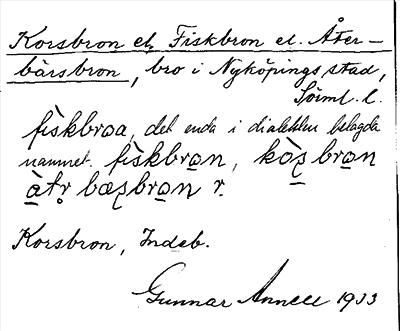 Korsbron el. Fiskbron el. Åter-
bärsbron, bro i Nyköpings stad,
Sörml. l.
fiskbroa, det enda i dialekten belagda
namnet. fiskbron, kọ̀ṣ bron
àtr bæṣbron r.
Korsbron, Indeb.
Gunnar Annell 1933